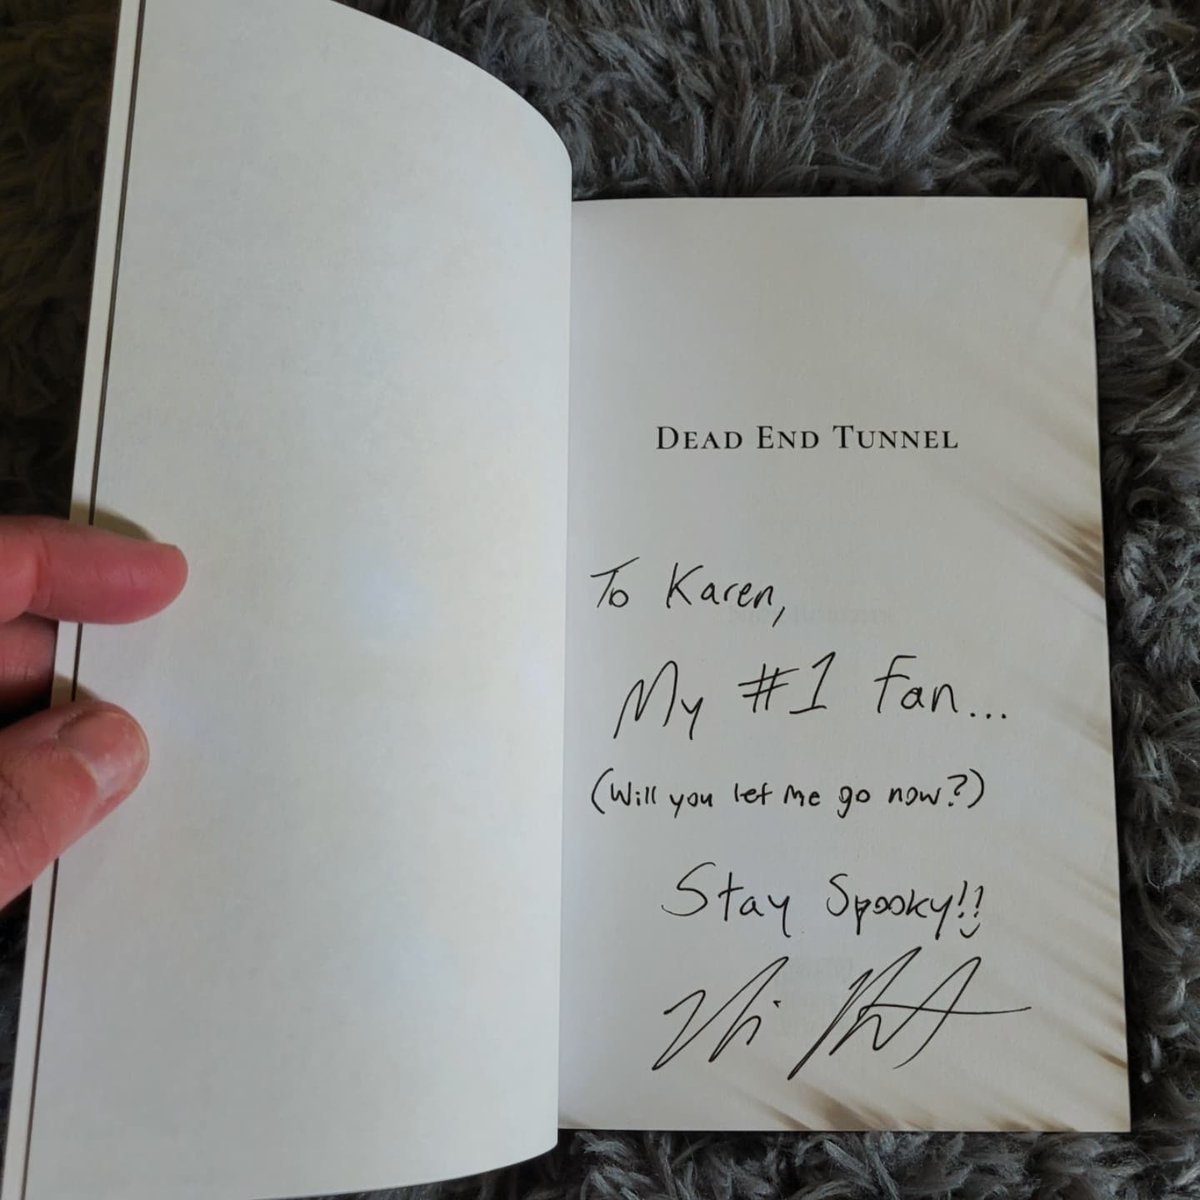 DEAD END TUNNEL
To Karen,
My #1 Fan...
(Will you let me go now?)
Stay Spooky!!